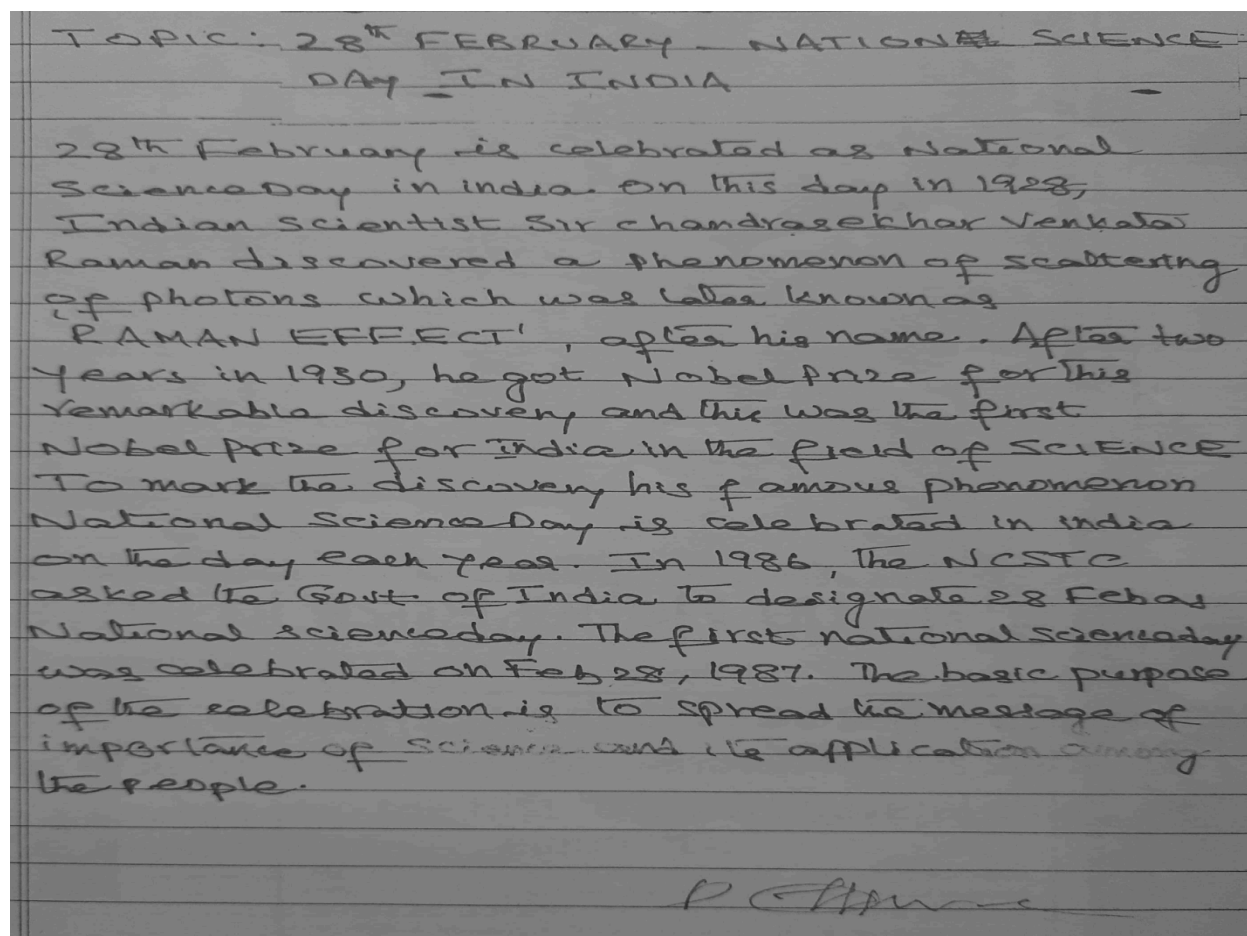 TOPIC: 28th FEBRUARY - NATIONAL SCIENCE
DAY - IN INDIA
28th February is celebrated as National
Science Day in india. On this day in 1928,
Indian Scientist Sir Chandrasekhar Venkata
Raman discovered a phenomenon of scattering
of photons which was later known as
'RAMAN EFFECT', after his name. After two
years in 1930, he got Nobel Prize for this
remarkable discovery and this was the first
Nobel Prize for India in the field of SCIENCE
To mark the discovery his famous phenomenon
National Science Day is celebrated in india
on the day each year. In 1986, the NCSTC
asked the Govt. of India to designate 28 Feb as
National science day. The first national science day
was celebrated on Feb 28, 1987. The basic purpose
of the celebration is to spread the message of
importance of Science and its application among
the people.